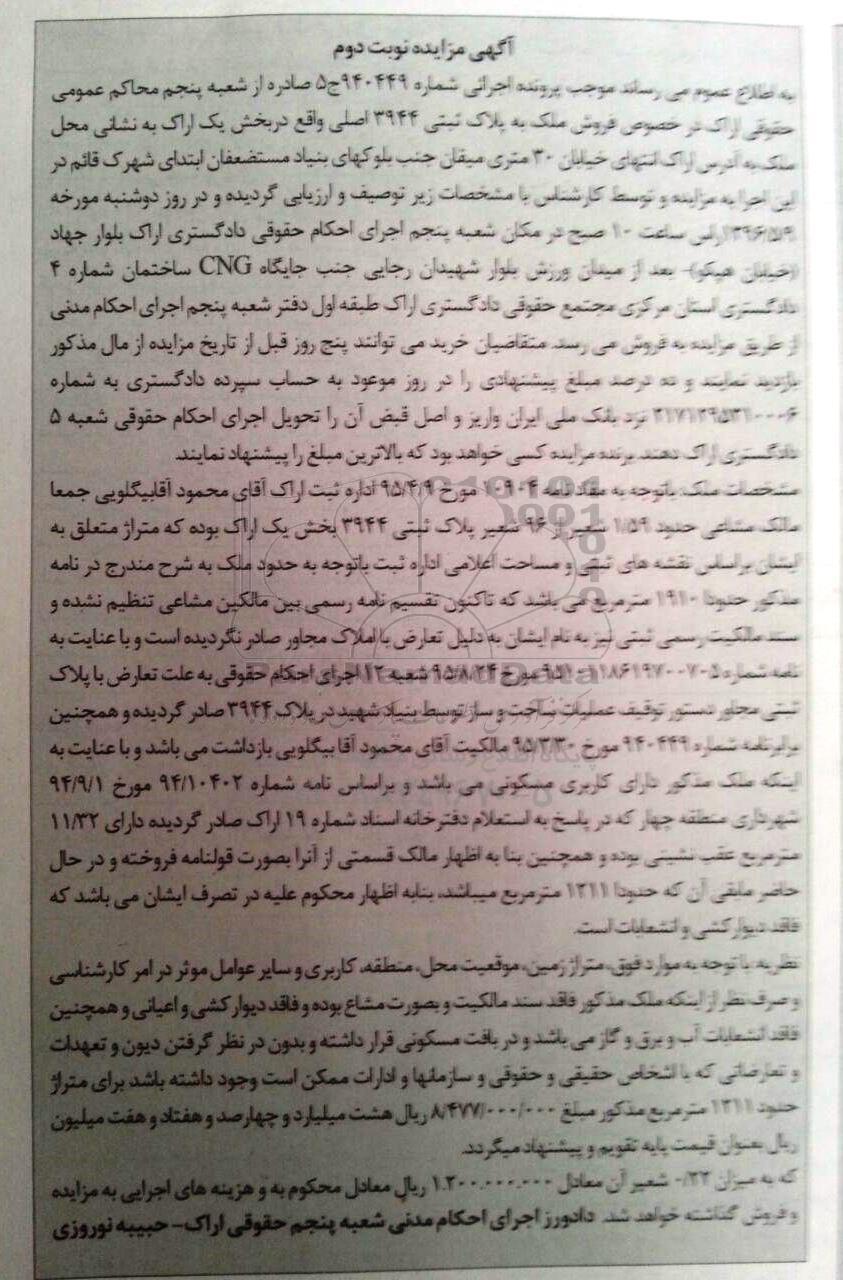 آگهی مزایده نوبت دوم
به اطلاع عموم می رساند موجب پرونده اجرائی شماره ۹۴۰۴۴۹ج۵ صادره از شعبه پنجم محاکم عمومی
حقوقی اراک در خصوص فروش ملک به پلاک ثبتی ۳۹۴۴ اصلی واقع دربخش یک اراک به نشانی محل
ملک به آدرس اراک انتهای خیابان ۳۰ متری میقان جنب بلوکهای بنیاد مستضعفان ابتدای شهرک قائم در
این اجرا به مزایده و توسط کارشناس با مشخصات زیر توصیف و ارزیابی گردیده و در روز دوشنبه مورخه
راس ساعت ۱۰ صبح در مکان شعبه پنجم اجرای احکام حقوقی دادگستری اراک بلوار جهاد
(خیابان هپکو)- بعد از میدان ورزش بلوار شهیدان رجایی جنب جایگاه CNG ساختمان شماره ۴
دادگستری استان مرکزی مجتمع حقوقی دادگستری اراک طبقه اول دفتر شعبه پنجم اجرای احکام مدنی
از طریق مزایده به فروش می رسد. متقاضیان خرید می توانند پنج روز قبل از تاریخ مزایده از مال مذکور
بازدید نمایند و ده درصد مبلغ پیشنهادی را در روز موعود به حساب سپرده دادگستری به شماره
نزد بانک ملی ایران واریز و اصل قبض آن را تحویل اجرای احکام حقوقی شعبه ۵
دادگستری اراک دهند. برنده مزایده کسی خواهد بود که بالاترین مبلغ را پیشنهاد نمایند.
مشخصات ملک: باتوجه به مفاد نامه ۱۰۹۰۴ مورخ ۹۵/۴/۹ اداره ثبت اراک آقای محمود آقابیگلویی جمعا
مالک مشاعی حدود ۱/۵۹ شعیر از ۹۶ شعیر پلاک ثبتی ۳۹۴۴ بخش یک اراک بوده که متراژ متعلق به
ایشان براساس نقشه های ثبتی و مساحت اعلامی اداره ثبت باتوجه به حدود ملک به شرح مندرج در نامه
مذکور حدودا ۱۹۱۰ مترمربع می باشد که تاکنون تقسیم نامه رسمی بین مالکین مشاعی تنظیم نشده و
سند مالکیت رسمی ثبتی نیز به نام ایشان به دلیل تعارض با املاک مجاور صادر نگردیده است و با عنایت به
نامه شماره مورخ ۹۵/۸/۲۴ شعبه ۱۲ اجرای احکام حقوقی به علت تعارض با پلاک
ثبتی مجاور دستور توقیف عملیات ساخت و ساز توسط بنیاد شهید در پلاک ۳۹۴۴ صادر گردیده و همچنین
برابرنامه شماره ۹۴۰۴۴۹ مورخ ۹۵/۳/۳۰ مالکیت آقای محمود آقا بیگلویی بازداشت می باشد و با عنایت به
اینکه ملک مذکور دارای کاربری مسکونی می باشد و براساس نامه شماره ۹۴/۱۰۴۰۲ مورخ ۹۴/۹/۱
شهرداری منطقه چهار که در پاسخ به استعلام دفترخانه اسناد شماره ۱۹ اراک صادر گردیده دارای ۱۱/۳۲
مترمربع عقب نشینی بوده و همچنین بنا به اظهار مالک قسمتی از آنرا بصورت قولنامه فروخته و در حال
حاضر مابقی آن که حدودا ۱۳۱۱ مترمربع میباشد، بنابه اظهار محکوم علیه در تصرف ایشان می باشد که
فاقد دیوارکشی و انشعابات است.
نظریه: با توجه به موارد فوق، متراژ زمین، موقعیت محل، منطقه، کاربری و سایر عوامل موثر در امر کارشناسی
و صرف نظر از اینکه ملک مذکور فاقد سند مالکیت و بصورت مشاع بوده و فاقد دیوارکشی و اعیانی و همچنین
فاقد انشعابات آب و برق و گاز می باشد و در بافت مسکونی قرار داشته و بدون در نظر گرفتن دیون و تعهدات
و تعارضاتی که با اشخاص حقیقی و حقوقی و سازمانها و ادارات ممکن است وجود داشته باشد برای متراژ
حدود ۱۳۱۱ مترمربع مذکور مبلغ ۸/۴۷۷/۰۰۰/۰۰۰ ریال هشت میلیارد و چهارصد و هفتاد و هفت میلیون
ریال بعنوان قیمت پایه تقویم و پیشنهاد میگردد.
که به میزان ۰/۲۲ شعیر آن معادل ۱.۲۰۰.۰۰۰.۰۰۰ ریال معادل محکوم به و هزینه های اجرایی به مزایده
و فروش گذاشته خواهد شد. دادورز اجرای احکام مدنی شعبه پنجم حقوقی اراک- حبیبه نوروزی